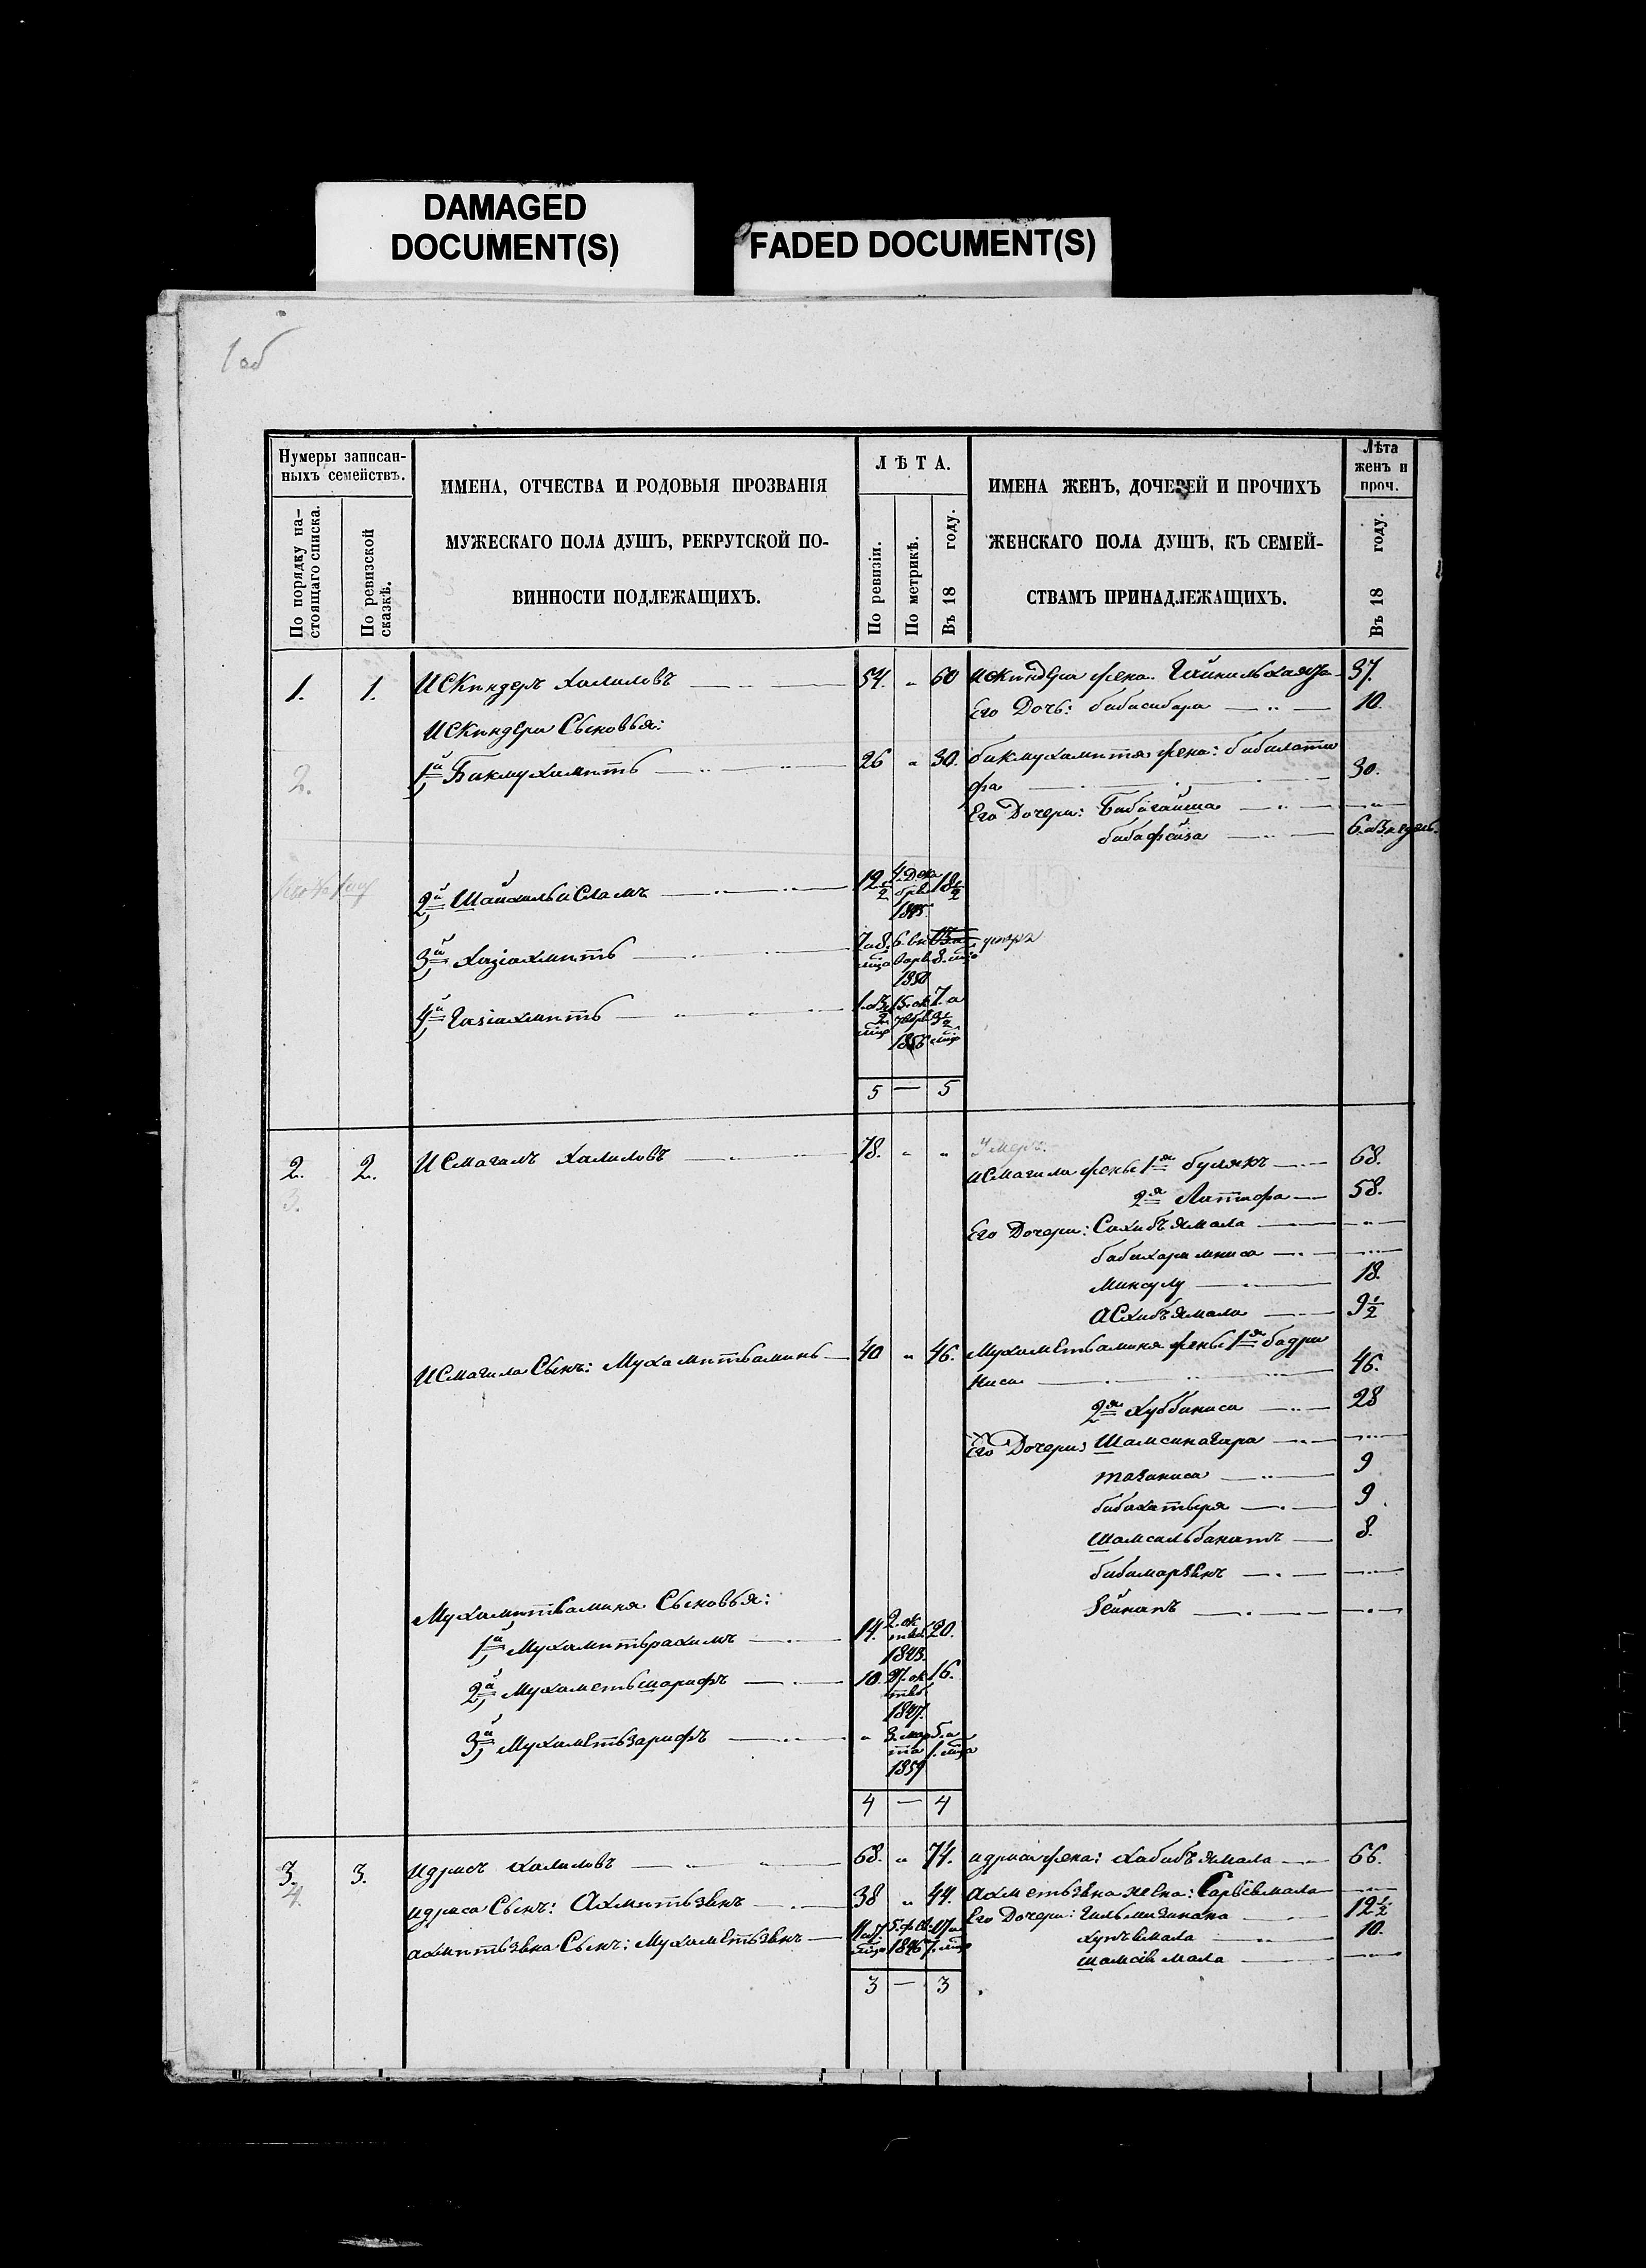 DAMAGED
DOCUMENT(S)
FADED DOCUMENT(S)
1 об
Нумеры записан-
ныхъ семействъ.
По порядку на-
стоящаго списка.
По ревизской
сказкѣ.
ИМЕНА, ОТЧЕСТВА И РОДОВЫЯ ПРОЗВАНІЯ
МУЖЕСКАГО ПОЛА ДУШЪ, РЕКРУТСКОЙ ПО-
ВИННОСТИ ПОДЛЕЖАЩИХЪ.
ЛѢТА.
По ревизіи.
По метрикѣ.
Въ 18 году.
ИМЕНА ЖЕНЪ, ДОЧЕРЕЙ И ПРОЧИХЪ
ЖЕНСКАГО ПОЛА ДУШЪ, КЪ СЕМЕЙ-
СТВАМЪ ПРИНАДЛЕЖАЩИХЪ.
Лѣта
женъ и
проч.
Въ 18 году.
1. 1. Искиндеръ Халиловъ 54. „ 60 Искиндера жена 37.
Его Дочь: бибисабира 10.
Искиндера Сыновья:
2. 1й Бикмухаметь 26 „ 30. бикмухаметя жена: бибилати
фа 30.
Его Дочери: Бибигайша „
бибифейза
2й Шайхильисламъ 12½ 4. Дека
бря 18½
1845
3й Хазіахметь
1850
4й Газіахметь
1856
5 — 5
2. 2. Исмагилъ Халиловъ 78. „ „ Умеръ.
3. Исмагила жены 1я булякъ 68.
2я Латифа 58.
Его Дочери: Сахибъямала „
бибихаримниса
Минсулу 18.
Асхибъямала 9½
Исмагила Сынъ: Мухаметьаминь 40 „ 46. Мухаметьаминя жены 1я бадри
ниса 46.
2я Хуббиниса 28
Его Дочери: Шамсинагира
тазиниса 9
9
Шамсильбанатъ 8.
Зейнапъ
Мухаметьаминя Сыновья:
1й Мухаметьрахимъ 14. 2. ок
тяб 20.
1843.
2й Мухаметьшарифъ 10. 27. ок 16.
тяб
1847.
3й Мухаметьзарифъ „ 3. мар 5. а
та 1. мѣца
1859
4 — 4
3. 3. Идрисъ Халиловъ 68. „ 74. Идриса жена: Хабибъямала 66.
4. Идриса Сынъ: Ахметьзянъ 38 „ 44. Ахметьзяна жена:
Его Дочери: 12½
Ахметьзяна Сынъ: Мухаметьзянъ 1846 10.
3 — 3